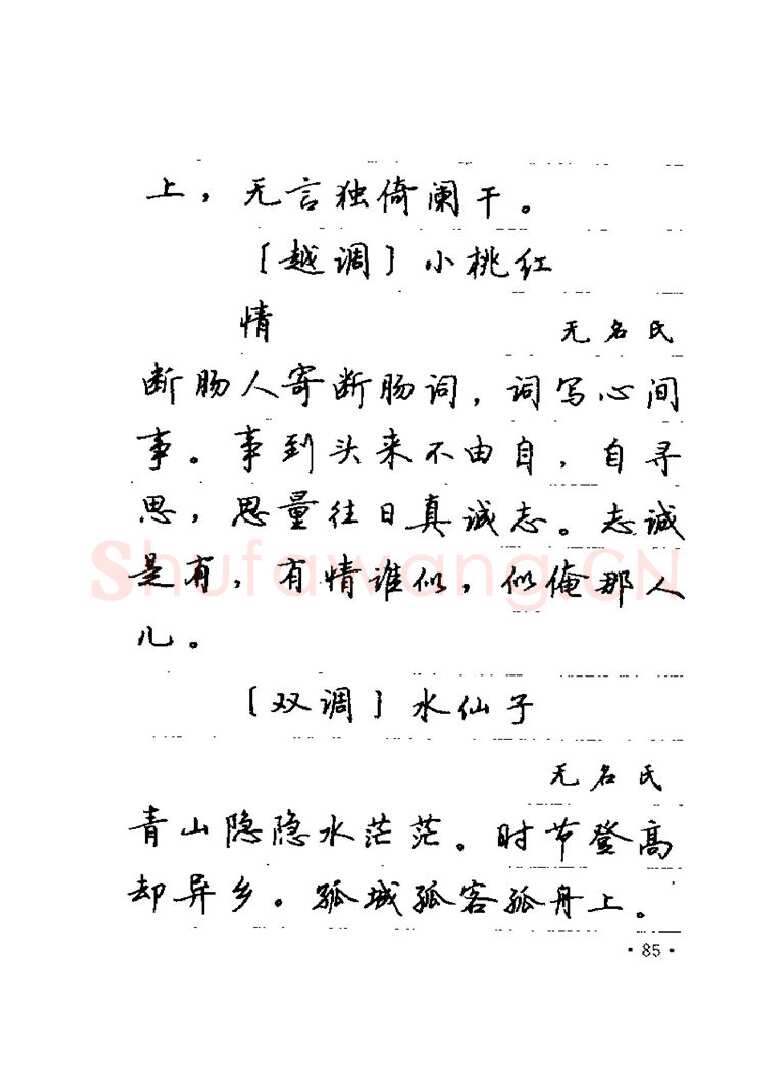 上，无言独倚阑干。
〔越调〕小桃红
情 无名氏
断肠人寄断肠词，词写心间
事。事到头来不由自，自寻
思，思量往日真诚志。志诚
是有，有情谁似，似俺那人
儿。
〔双调〕水仙子
无名氏
青山隐隐水茫茫。时节登高
却异乡。孤城孤客孤舟上。
·85·
Shufawang.CN